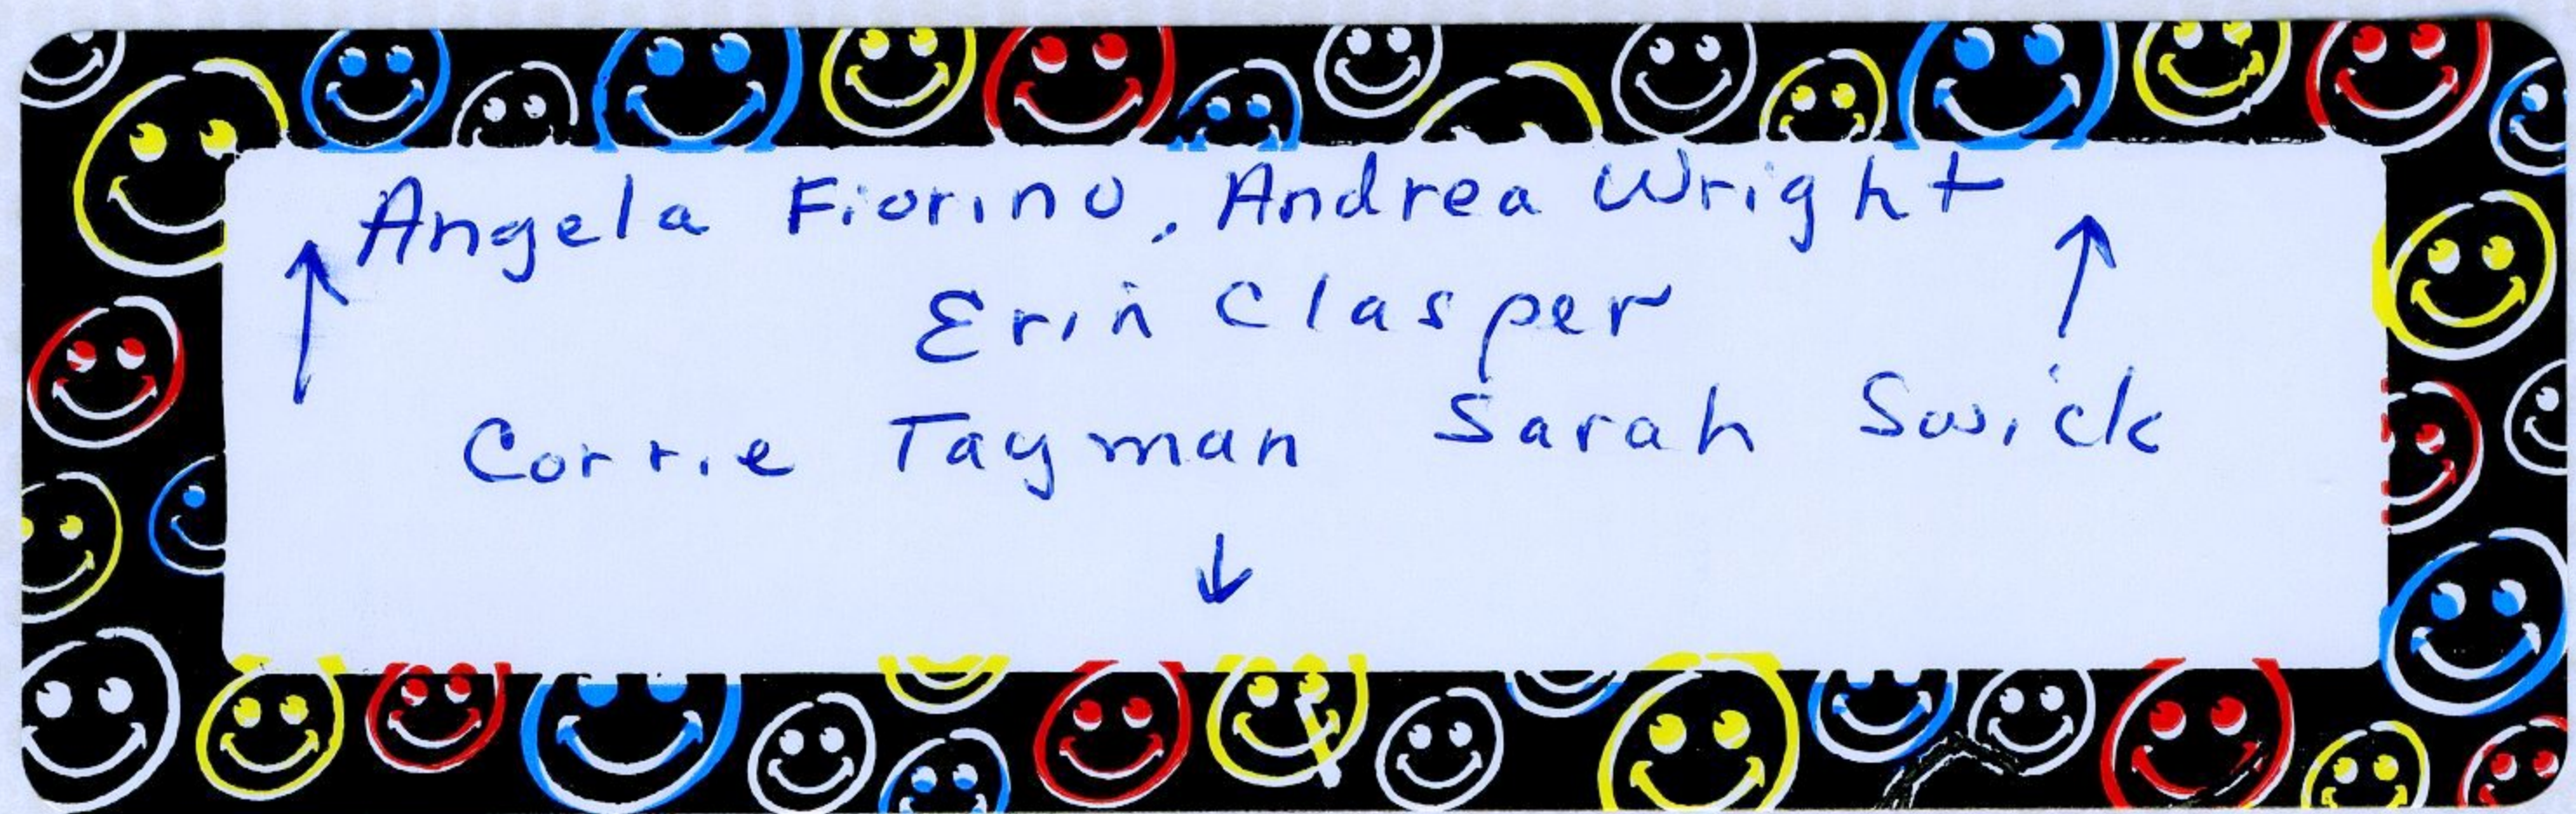 Angela Fiorino, Andrea Wright
Erin Clasper
Corrie Tayman Sarah Swick